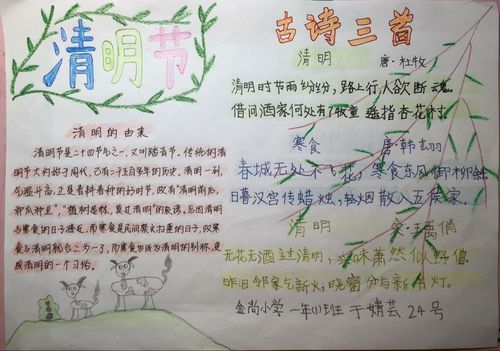 清明节
清明的由来
清明节是二十四节气之一，又叫踏青节。传统的清
明节大约始于周代，已有二千五百多年的历史。清明一到，
气温升高，正是春耕春种的好时节，故有"清明前后，
种瓜种豆"，"植树造林，莫过清明"的农谚。后因清明
与寒食的日子接近，而寒食是民间禁火扫墓的日子，故寒
食与清明就合二为一了，而寒食也成为清明的别称，变
成清明的一个习俗。
古诗三首
清明 唐·杜牧
清明时节雨纷纷，路上行人欲断魂。
借问酒家何处有？牧童遥指杏花村。
寒食 唐·韩翃
春城无处不飞花，寒食东风御柳斜
日暮汉宫传蜡烛，轻烟散入五侯家。
清明 宋·王禹偁
无花无酒过清明，兴味萧然似野僧
昨日邻家乞新火，晓窗分与读书灯。
金尚小学 一年(1)班 于婧芸 24号